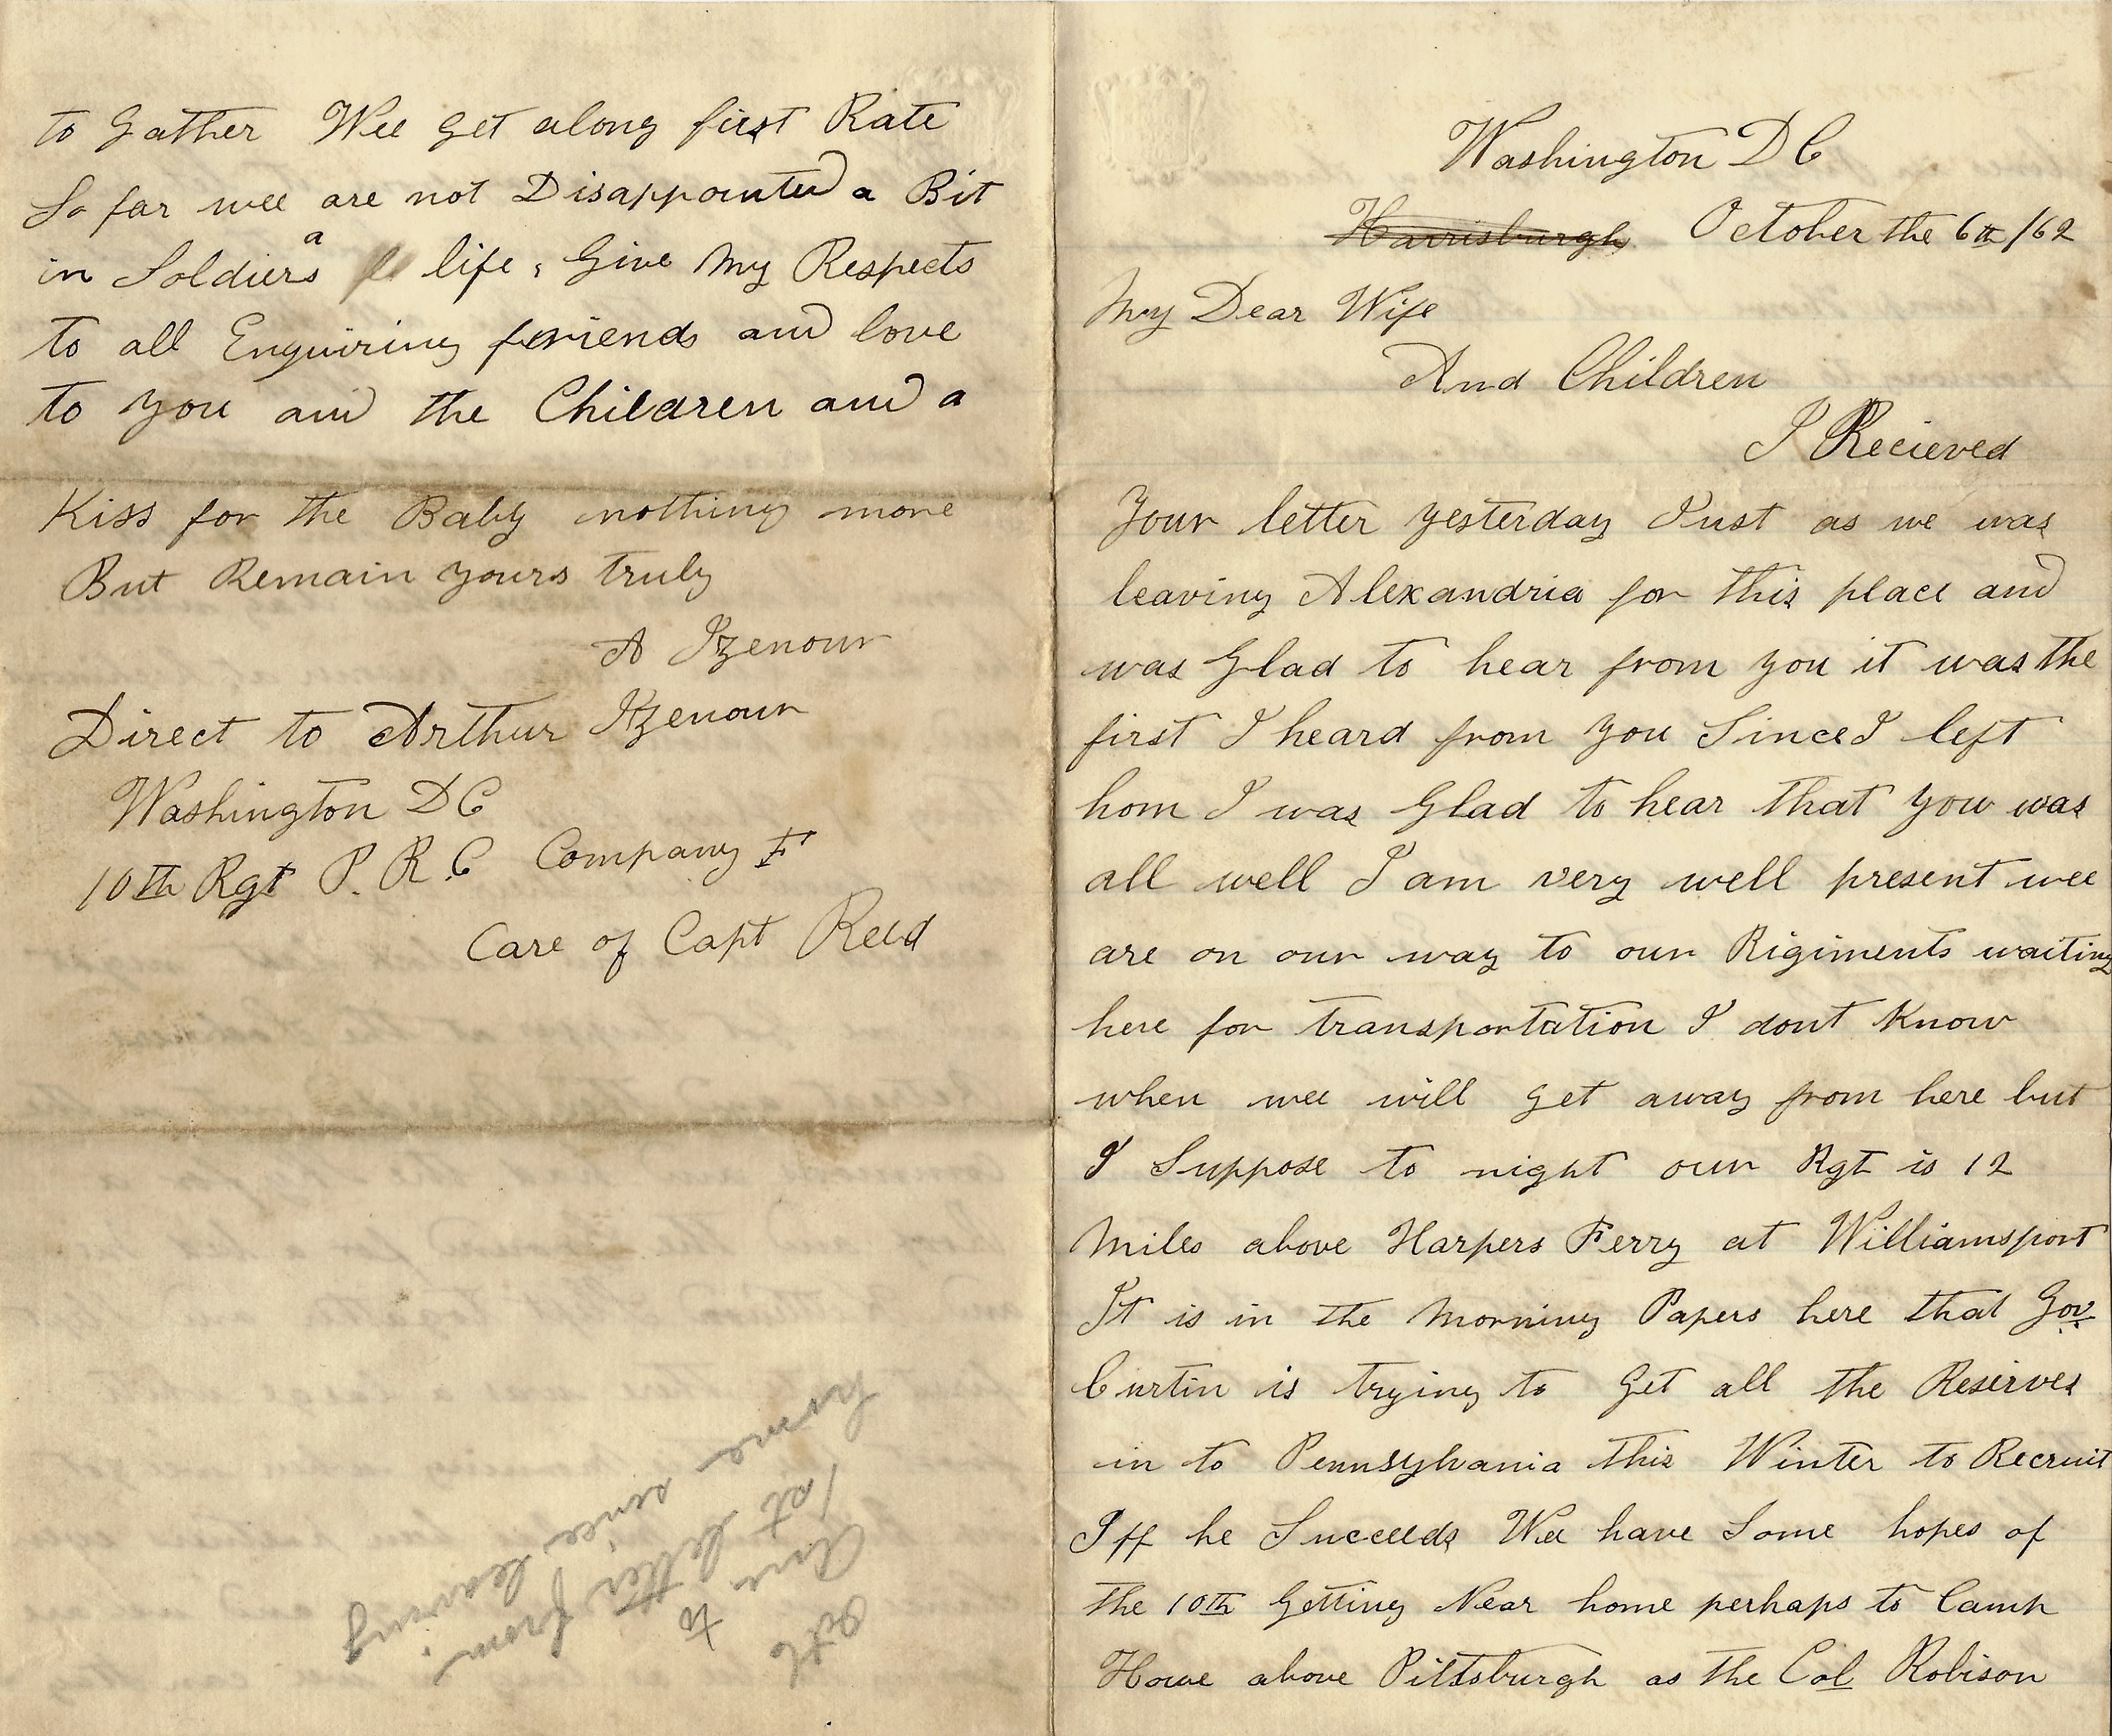 Washington D C
Harrisburgh October the 6th /62
My Dear Wife
And Children
I Recieved
Your letter yesterday Just as we was
leaving Alexandria for this place and
was Glad to hear from you it was the
first I heard from you Since I left
hom I was Glad to hear that you was
all well I am very well present wee
are on our way to our Rigiments waiting
here for transportation I dont Know
when wee will get away from here but
I Suppose to night our Rgt is 12
Miles above Harpers Ferry at Williamsport
It is in the Morning Papers here that Gov
Curtin is trying to Get all the Reserves
in to Pennsylvania this Winter to Recruit
Iff he Succeeds Wee have Some hopes of
the 10th Getting Near home perhaps to Camp
Howe above Pittsburgh as the Col Robison
to Gather Wee Get along first Rate
So far wee are not Disappointed a Bit
in Soldiers a life, Give My Respects
to all Enquiring friends and love
to you and the Children and a
Kiss for the Baby nothing more
But Remain yours truly
A Izenour
Direct to Arthur Izenour
Washington DC
10th Rgt P. R. C Company F
Care of Capt Reed
Oct 6
to
1st letter from
home since leaving